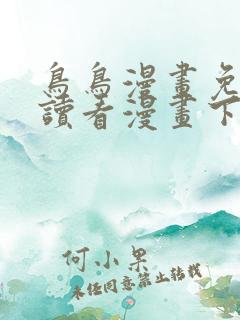 鳥鳥漫畫免
讀看漫畫下
何小果
未任同意禁止轉載